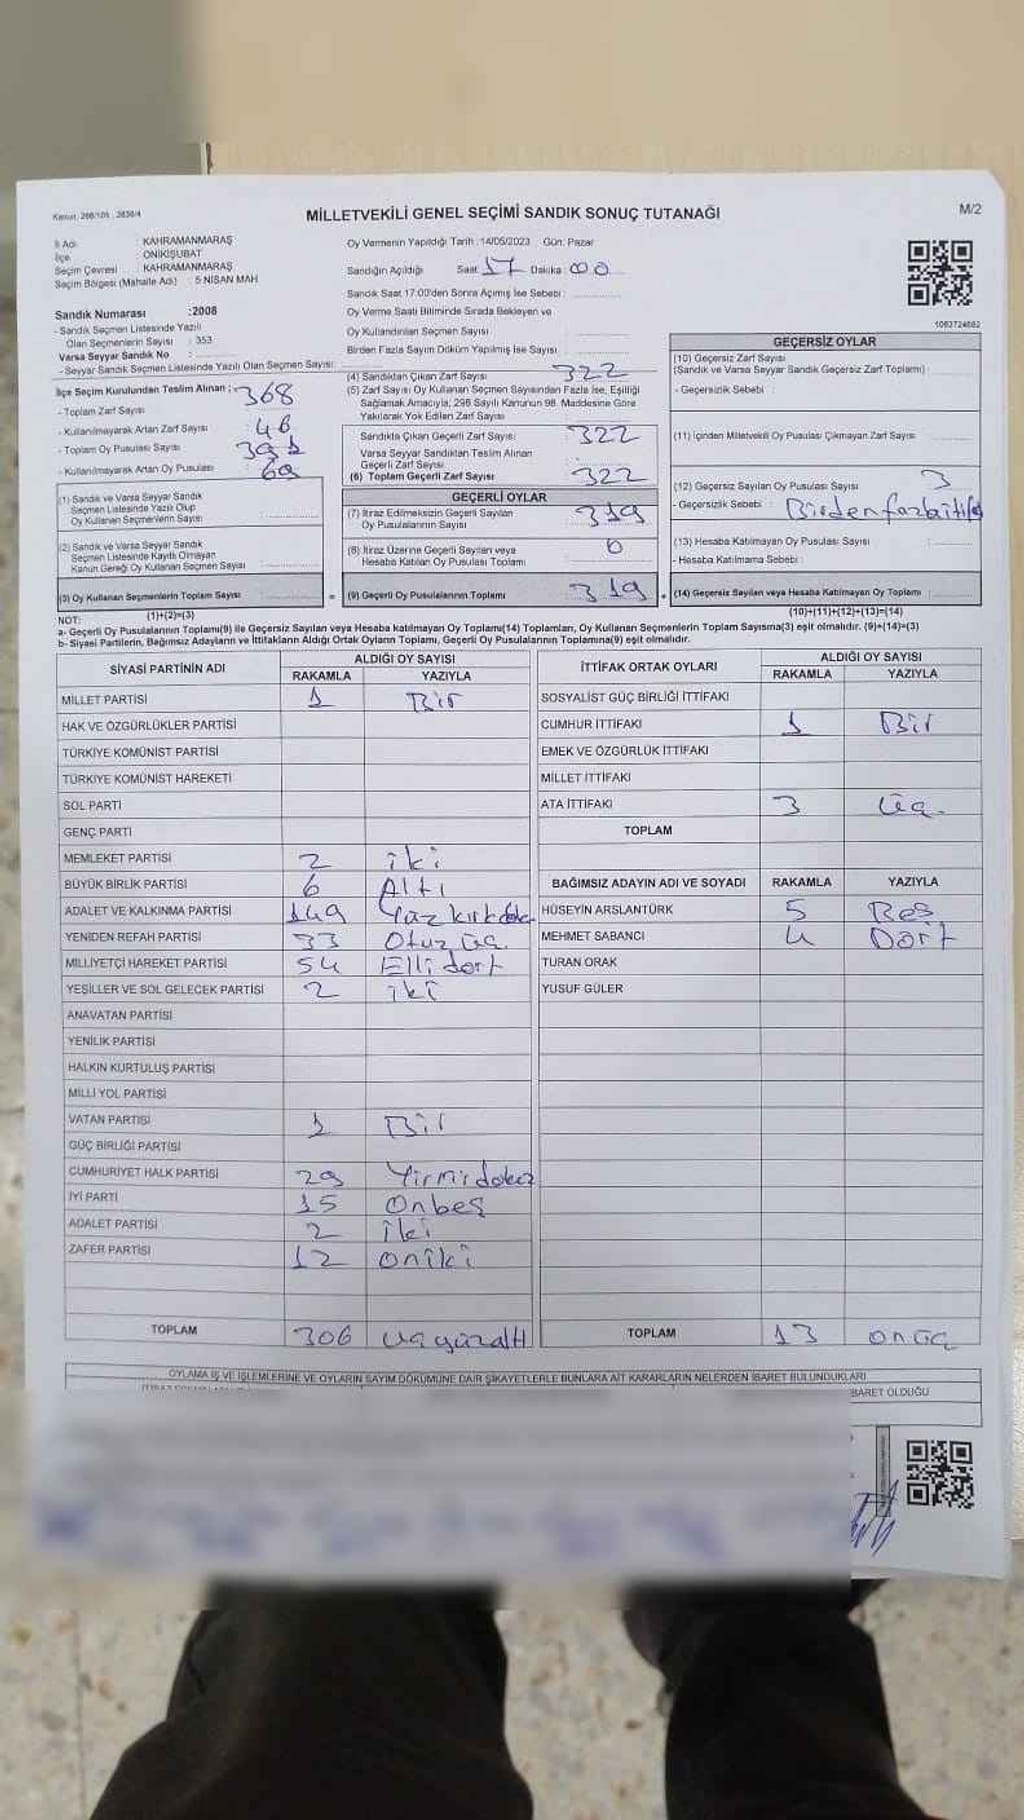 MİLLETVEKİLİ GENEL SEÇİMİ SANDIK SONUÇ TUTANAĞI
M/2
İl Adı : KAHRAMANMARAŞ
İlçe : ONİKİŞUBAT
Seçim Çevresi : KAHRAMANMARAŞ
Seçim Bölgesi (Mahalle Adı) : 5 NİSAN MAH
Oy Vermenin Yapıldığı Tarih : 14/05/2023 Gün: Pazar
Sandığın Açıldığı Saat 17 Dakika : 00
Sandık Saat 17:00'den Sonra Açılmış İse Sebebi :
Sandık Numarası :2008
- Sandık Seçmen Listesinde Yazılı
Olan Seçmenlerin Sayısı : 353
Varsa Seyyar Sandık No :
- Seyyar Sandık Seçmen Listesinde Yazılı Olan Seçmen Sayısı:
Oy Verme Saati Bitiminde Sırada Bekleyen ve
Oy Kullandırılan Seçmen Sayısı :
Birden Fazla Sayım Döküm Yapılmış İse Sayısı :
1083724682
İlçe Seçim Kurulundan Teslim Alınan :
- Toplam Zarf Sayısı 368
- Kullanılmayarak Artan Zarf Sayısı 46
- Toplam Oy Pusulası Sayısı 391
- Kullanılmayarak Artan Oy Pusulası 69
(1) Sandık ve Varsa Seyyar Sandık
Seçmen Listesinde Yazılı Olup
Oy Kullanan Seçmenlerin Sayısı
(2) Sandık ve Varsa Seyyar Sandık
Seçmen Listesinde Kayıtlı Olmayan
Kanun Gereği Oy Kullanan Seçmen Sayısı
(3) Oy Kullanan Seçmenlerin Toplam Sayısı
(1)+(2)=(3)
(4) Sandıktan Çıkan Zarf Sayısı 322
(5) Zarf Sayısı Oy Kullanan Seçmen Sayısından Fazla İse, Eşitliği
Sağlamak Amacıyla, 298 Sayılı Kanunun 98. Maddesine Göre
Yakılarak Yok Edilen Zarf Sayısı
Sandıkta Çıkan Geçerli Zarf Sayısı 322
Varsa Seyyar Sandıktan Teslim Alınan
Geçerli Zarf Sayısı
(6) Toplam Geçerli Zarf Sayısı 322
GEÇERLİ OYLAR
(7) İtiraz Edilmeksizin Geçerli Sayılan
Oy Pusulalarının Sayısı 319
(8) İtiraz Üzerine Geçerli Sayılan veya
Hesaba Katılan Oy Pusulası Toplamı 0
(9) Geçerli Oy Pusulalarının Toplamı 319
GEÇERSİZ OYLAR
(10) Geçersiz Zarf Sayısı
(Sandık ve Varsa Seyyar Sandık Geçersiz Zarf Toplamı)
- Geçersizlik Sebebi :
(11) İçinden Milletvekili Oy Pusulası Çıkmayan Zarf Sayısı
(12) Geçersiz Sayılan Oy Pusulası Sayısı 3
- Geçersizlik Sebebi :
(13) Hesaba Katılmayan Oy Pusulası Sayısı
- Hesaba Katılmama Sebebi :
(14) Geçersiz Sayılan veya Hesaba Katılmayan Oy Toplamı
(10)+(11)+(12)+(13)=(14)
NOT:
a- Geçerli Oy Pusulalarının Toplamı(9) ile Geçersiz Sayılan veya Hesaba katılmayan Oy Toplamı(14) Toplamları, Oy Kullanan Seçmenlerin Toplam Sayısına(3) eşit olmalıdır. (9)+(14)=(3)
b- Siyasi Partilerin, Bağımsız Adayların ve İttifakların Aldığı Ortak Oyların Toplamı, Geçerli Oy Pusulalarının Toplamına(9) eşit olmalıdır.
SİYASİ PARTİNİN ADI ALDIĞI OY SAYISI
RAKAMLA YAZIYLA
MİLLET PARTİSİ 1 Bir
HAK VE ÖZGÜRLÜKLER PARTİSİ
TÜRKİYE KOMÜNİST PARTİSİ
TÜRKİYE KOMÜNİST HAREKETİ
SOL PARTİ
GENÇ PARTİ
MEMLEKET PARTİSİ 2 iki
BÜYÜK BİRLİK PARTİSİ 6 Altı
ADALET VE KALKINMA PARTİSİ 149
YENİDEN REFAH PARTİSİ 33 Otuz üç.
MİLLİYETÇİ HAREKET PARTİSİ 54 Elli dört
YEŞİLLER VE SOL GELECEK PARTİSİ 2 iki
ANAVATAN PARTİSİ
YENİLİK PARTİSİ
HALKIN KURTULUŞ PARTİSİ
MİLLİ YOL PARTİSİ
VATAN PARTİSİ 1 Bir
GÜÇ BİRLİĞİ PARTİSİ
CUMHURİYET HALK PARTİSİ 29 Yirmi dokuz
İYİ PARTİ 15 Onbeş
ADALET PARTİSİ 2 iki
ZAFER PARTİSİ 12 oniki
TOPLAM 306 üçyüzaltı
İTTİFAK ORTAK OYLARI ALDIĞI OY SAYISI
RAKAMLA YAZIYLA
SOSYALİST GÜÇ BİRLİĞİ İTTİFAKI
CUMHUR İTTİFAKI 1 Bir
EMEK VE ÖZGÜRLÜK İTTİFAKI
MİLLET İTTİFAKI
ATA İTTİFAKI 3 üç.
TOPLAM
BAĞIMSIZ ADAYIN ADI VE SOYADI RAKAMLA YAZIYLA
HÜSEYİN ARSLANTÜRK 5 Beş
MEHMET SABANCI 4 Dört
TURAN ORAK
YUSUF GÜLER
TOPLAM 13 onüç
OYLAMA İŞ VE İŞLEMLERİNE VE OYLARIN SAYIM DÖKÜMÜNE DAİR ŞİKAYETLERLE BUNLARA AİT KARARLARIN NELERDEN İBARET BULUNDUKLARI
İBARET OLDUĞU